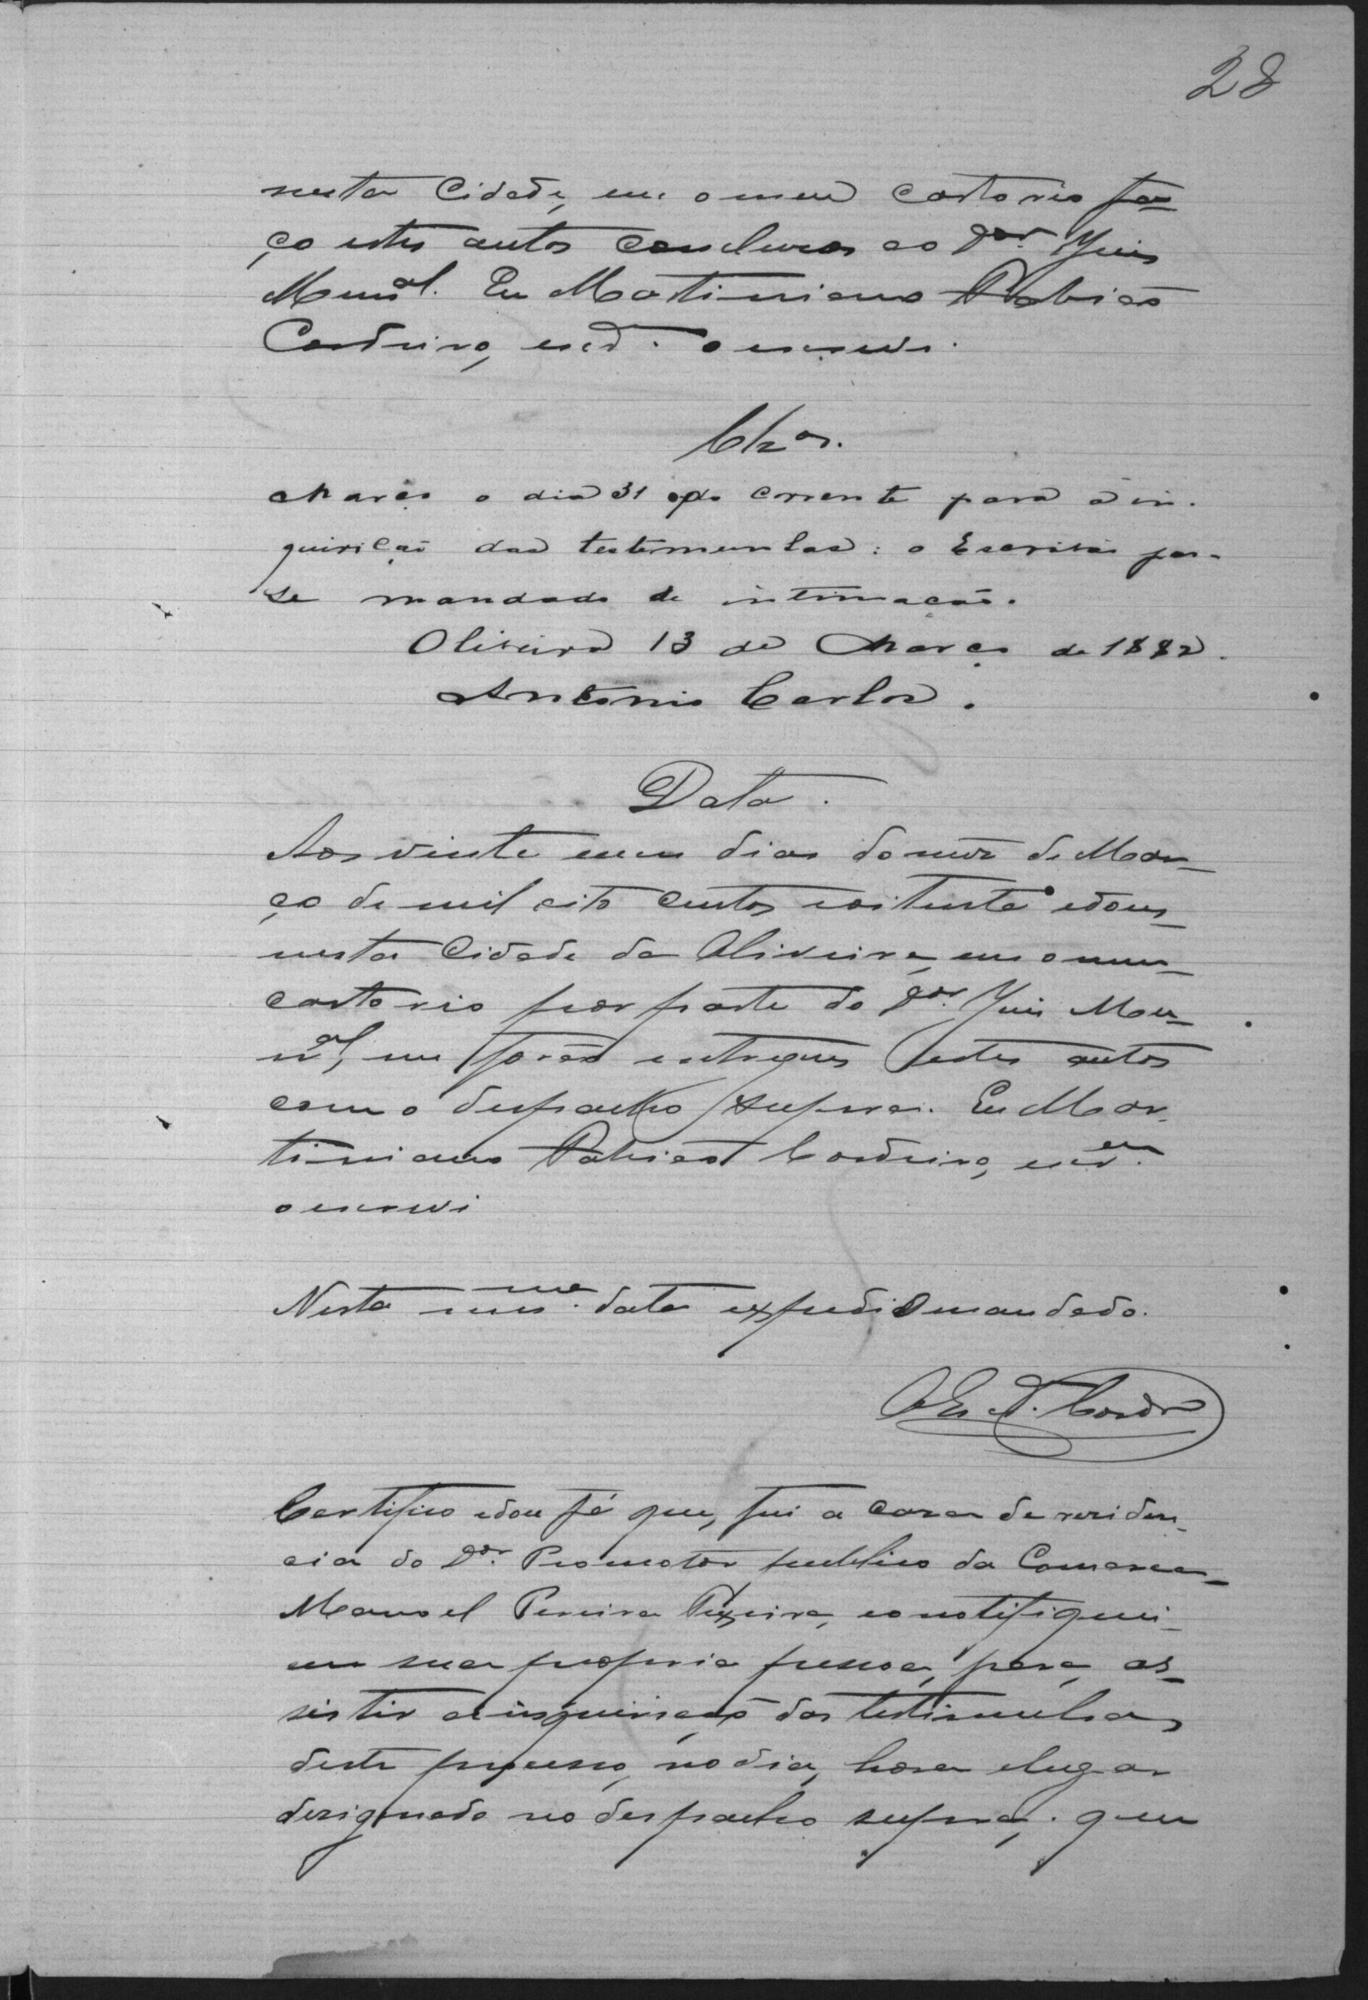 28
nesta Cidade, em o meu cartorio fa-
ço estes autos conclusos ao Dor. Juis
Munal. Eu Martiniano
Cordeiro, escr. o escrevi.
Clzos.
Março o dia 31 do corrente para a in-
quirição das testemunhas: o Escrivão pas-
se mandado de intimação.
Oliveira 13 de Março de 1882.
Antonio Carlos.
Data.
Aos vinte e um dias do mez de Mar-
ço de mil oito centos e oitenta e dous
nesta Cidade da Oliveira, em o meu
cartorio por parte do Dor. Juis Mu-
nal, me forão entregues estes autos
com o despacho supra. Eu Mar-
tiniano Cordeiro, escrm.
o escrevi
Nesta mma. data expedi o mandado.
O Es. Cordro
Certifico e dou fé que, fui a caza de reziden-
cia do Dor. Promotor publico da Comarca
Manoel Pereira Teixeira, e o notifiquei
em sua propria pessoa, para as-
sistir a inquirição das testimunhas
deste processo, no dia, hora e lugar
dezignado no despacho supra; que